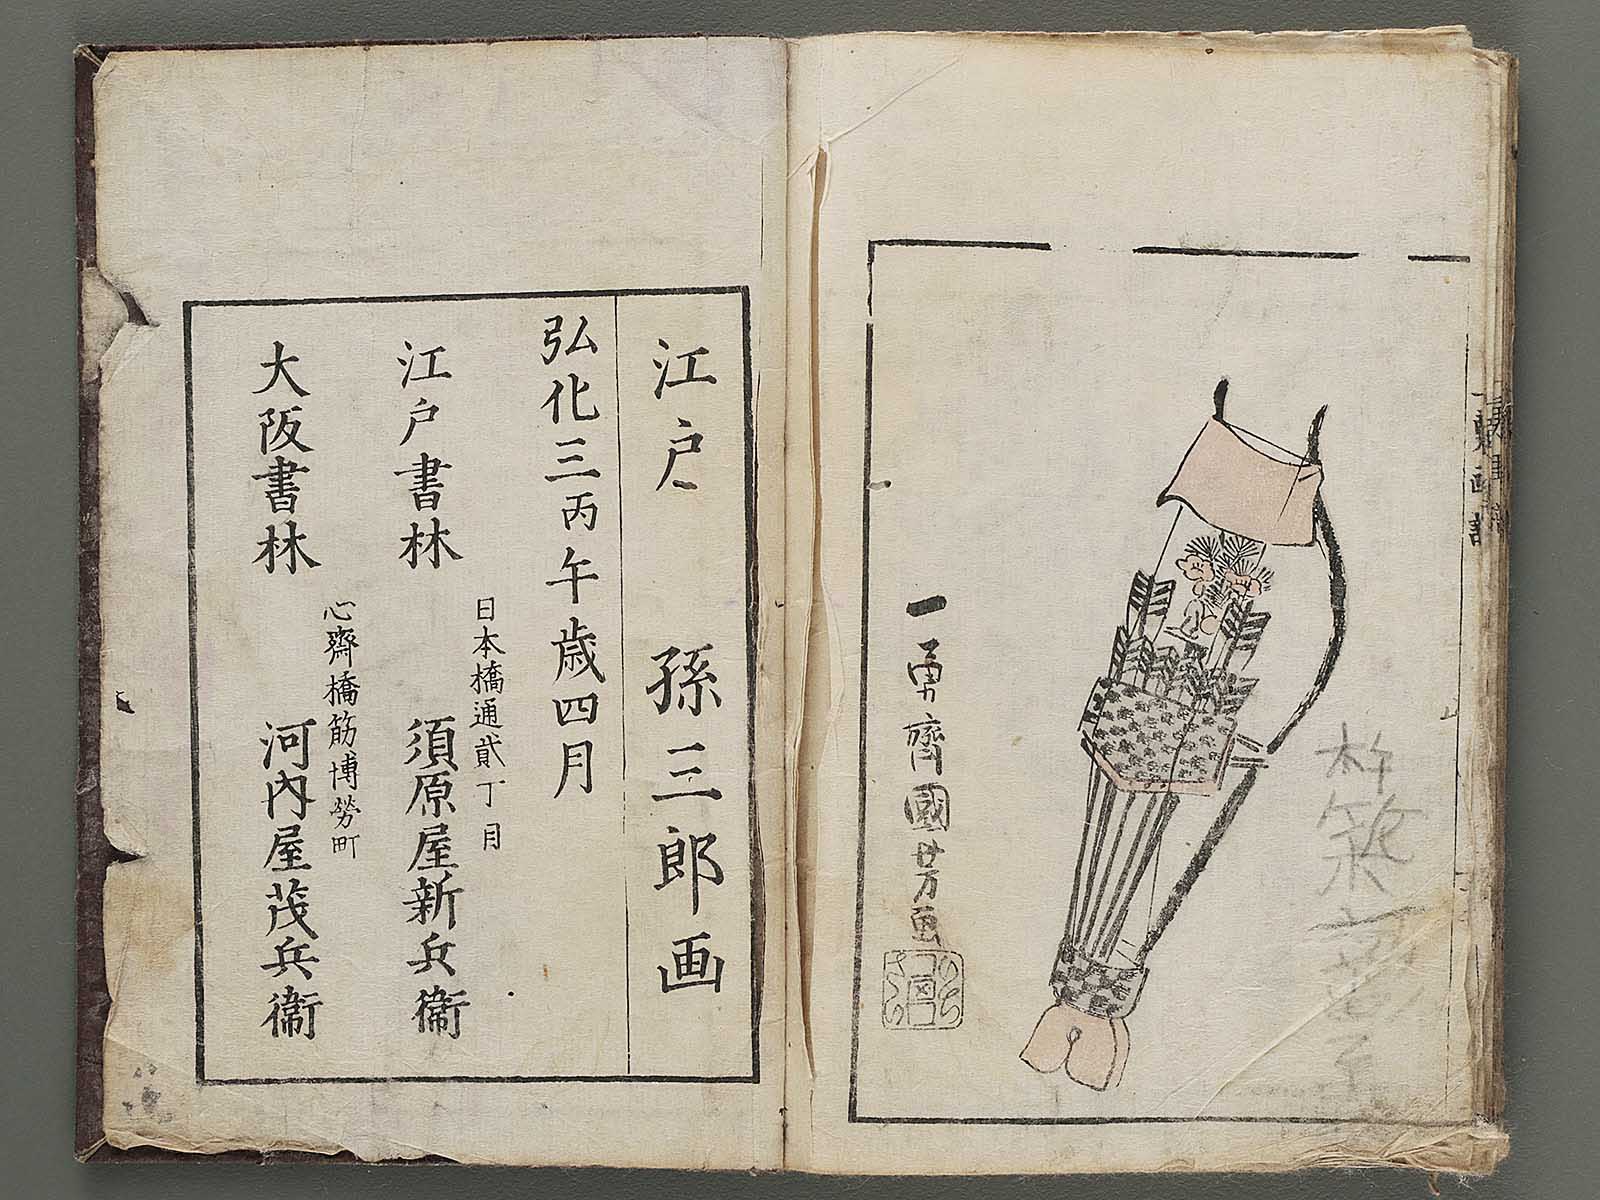 一勇齋國芳画
江戸 孫三郎画
弘化三丙午歳四月
日本橋通貳丁目
江戸書林 須原屋新兵衞
心齋橋筋博勞町
大阪書林 河内屋茂兵衞